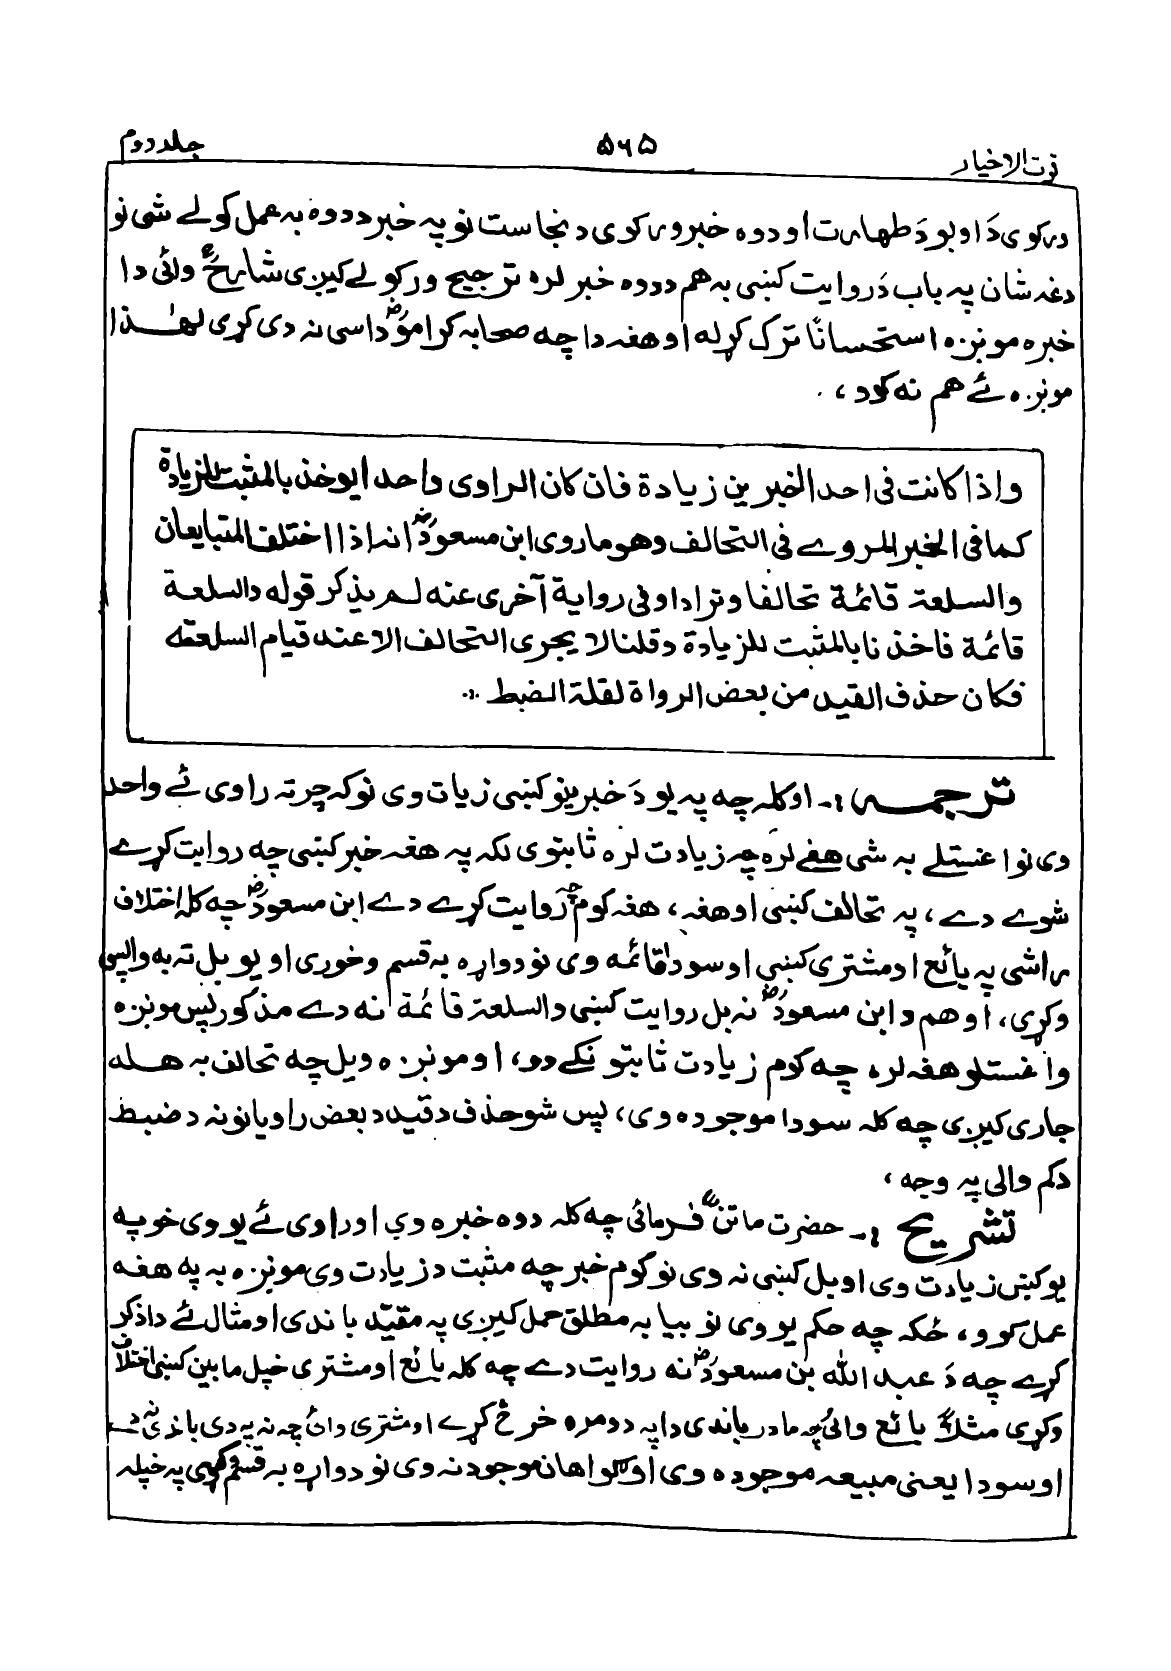 قوت الاخیار ۵۶۵ جلد دوم
درکوی دَ اوبو دَ طهارت او دوه خبر ورکوی د نجاست نو په خبر د دوه به عمل کولے شی نو
دغه شان په باب دَ روایت کښی به هم د دوه خبر لره ترجیح ورکولے کیږی شارحؒ وائی دا
خبره مونږه استحساناً ترک کړله او هغه دا چه صحابه کرامؓو داسی نه دی کړی لهٰذا
مونږه ئے هم نه کوو ،
واذا کانت فی احد الخبرین زیادة فان کان الراوی واحد ایوخذ بالمثبت للزیادة
کما فی الخبر المروے فی التحالف وهو ماروی ابن مسعودؓ انه اذا اختلف المتبایعان
والسلعة قائمة تحالفا وترادا وفی روایة آخری عنه لم یذکر قوله والسلعة
قائمة فاخذ نا بالمثبت للزیادة وقلنا لا یجری التحالف الا عند قیام السلعة
فکان حذف القید من بعض الرواة لقلة الضبط
ترجمه :- او کله چه په یو دَ خبرینو کښی زیات وی نو که چرته راوی ئے واحد
وی نو اغستلے به شی هغے لره چه زیادت لره ثابتوی لکه په هغه خبر کښی چه روایت کړے
شوے دے ، په تحالف کښی او هغه ، هغه کوم چه روایت کړے دے ابن مسعودؓ چه کله اختلاف
راشی په بائع او مشتری کښی او سودا قائمه وی نو دواړه به قسم وخوری او یو بل ته به واپس
وکړی، او هم د ابن مسعودؓ نه بل روایت کښی والسلعة قائمة نه دے مذکور پس مونږه
واغستلو هغه لره چه کوم زیادت ثابتونکے دو، او مونږه ویل چه تحالف به هله
جاری کیږی چه کله سودا موجوده وی، پس شو حذف د قید د بعض راویانو نه د ضبط
دکم والی په وجه ،
تشریح :- حضرت ماتنؒ فرمائی چه کله دوه خبره وی او راوی ئے یو وی خو په
یو کښی زیادت وی او بل کښی نه وی نو کوم خبر چه مثبت د زیادت وی مونږه به په هغه
عمل کوو ، ځکه چه حکم یو وی نو بیا به مطلق حمل کیږی په مقیّد باندی او مثال ئے دا ذکر
کړے چه دَ عبد الله بن مسعودؓ نه روایت دے چه کله بائع او مشتری خپل مابین کښی اختلاف
وکړی مثلاً بائع وائی چه ما در باندی دا په دومره خرڅ کړے او مشتری وائی چه نه په دی باندی نه دے
او سودا یعنی مبیعه موجوده وی او ګواهان موجود نه وی نو دواړه به قسم وکړی په خپله